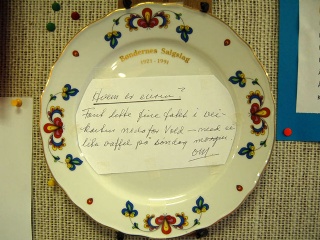 Bøndernes Salgslag
1931 - 1981
Hvem er eieren?
fant dette fine fatet i vei-
kanten nedafor Vold - med ei
lita vaffel på søndag morgen